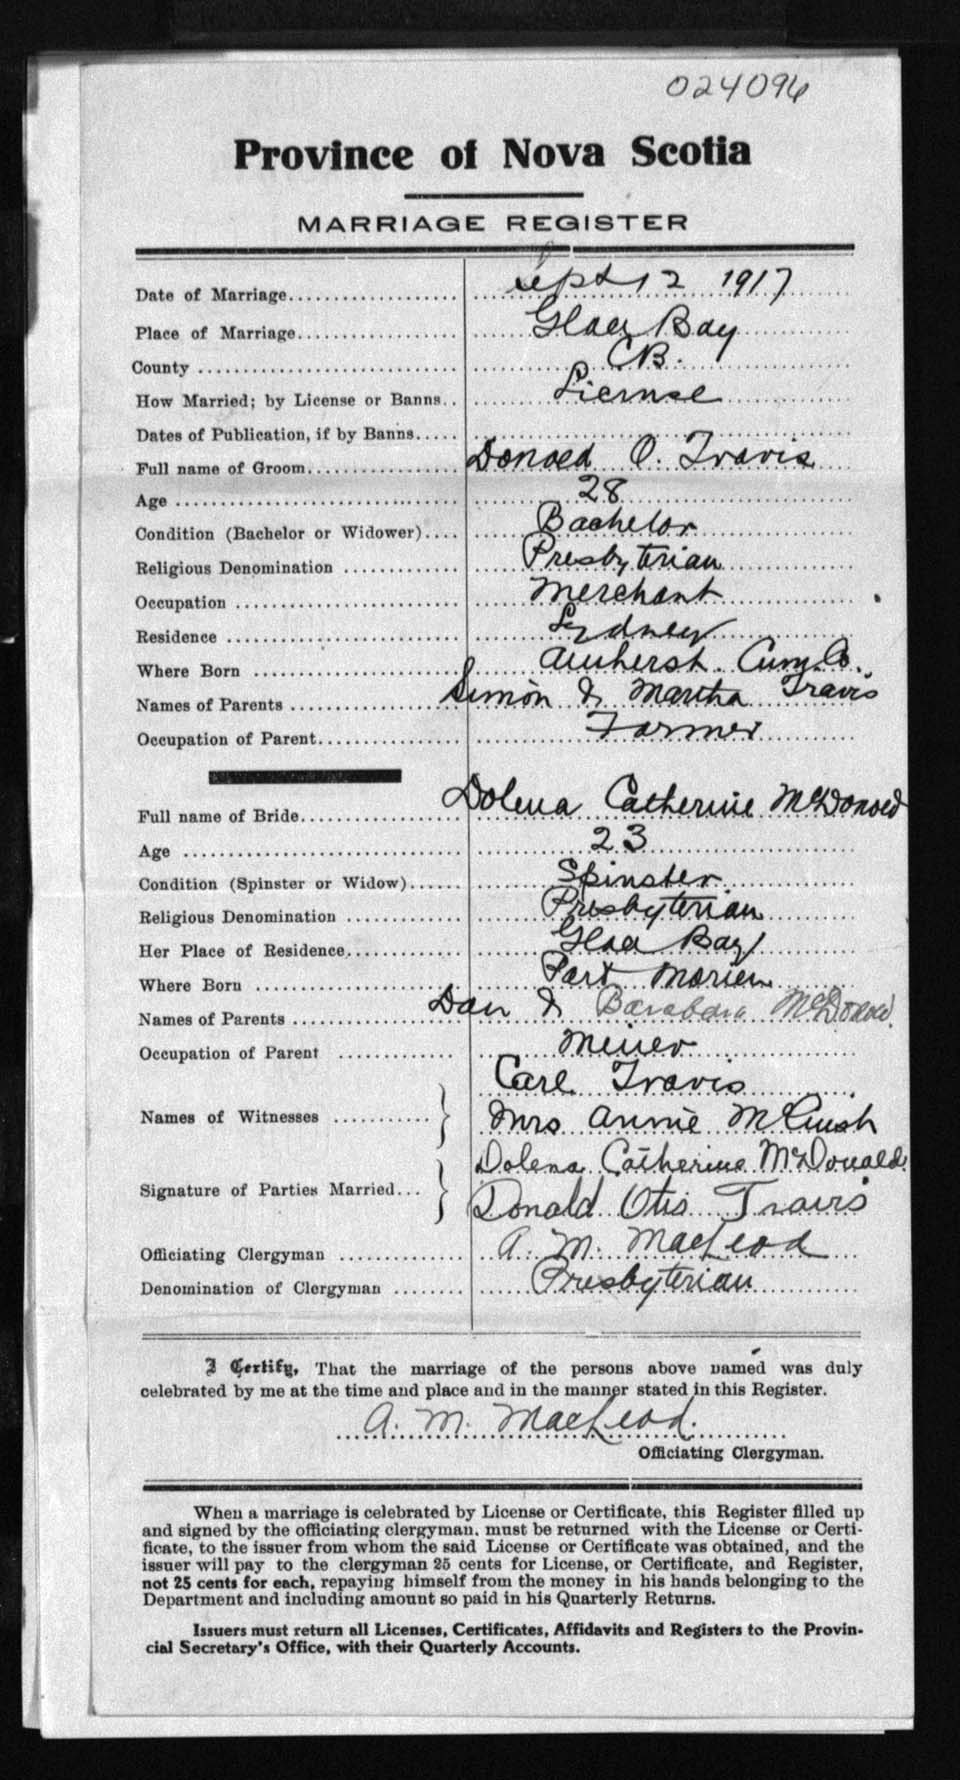 024096
Province of Nova Scotia
MARRIAGE REGISTER
Date of Marriage.................. Sept 12 1917
Place of Marriage.................. Glace Bay
County .................. CB.
How Married; by License or Banns.. License
Dates of Publication, if by Banns.....
Full name of Groom.................. Donald O. Travis
Age .................. 28
Condition (Bachelor or Widower).... Bachelor
Religious Denomination .................. Presbyterian
Occupation .................. Merchant
Residence .................. Sydney
Where Born .................. Amherst Cum. Co.
Names of Parents .................. Simon & Martha Travis
Occupation of Parent.................. Farmer
Full name of Bride.................. Dolena Catherine McDonald
Age .................. 23
Condition (Spinster or Widow)...... Spinster
Religious Denomination .................. Presbyterian
Her Place of Residence.................. Glace Bay
Where Born .................. Port Morien
Names of Parents .................. Dan & Barabara McDonald
Occupation of Parent .................. Miner
Carl Travis
Names of Witnesses ........... Mrs Annie
Dolena Catherine McDonald
Signature of Parties Married... Donald Otis Travis
Officiating Clergyman .................. A. M. MacLeod
Denomination of Clergyman ........ Presbyterian
I Certify, That the marriage of the persons above named was duly
celebrated by me at the time and place and in the manner stated in this Register.
A. M. MacLeod.
Officiating Clergyman.
When a marriage is celebrated by License or Certificate, this Register filled up
and signed by the officiating clergyman, must be returned with the License or Certi-
ficate, to the issuer from whom the said License or Certificate was obtained, and the
issuer will pay to the clergyman 25 cents for License, or Certificate, and Register,
not 25 cents for each, repaying himself from the money in his hands belonging to the
Department and including amount so paid in his Quarterly Returns.
Issuers must return all Licenses, Certificates, Affidavits and Registers to the Provin-
cial Secretary's Office, with their Quarterly Accounts.